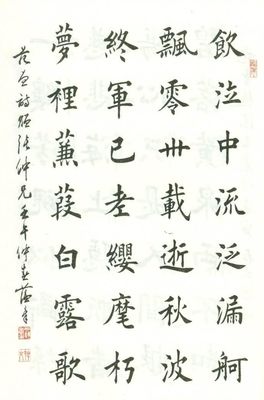 飲泣中流泛漏舸
飄零卅載逝秋波
終軍已老纓麾朽
夢裡蒹葭白露歌